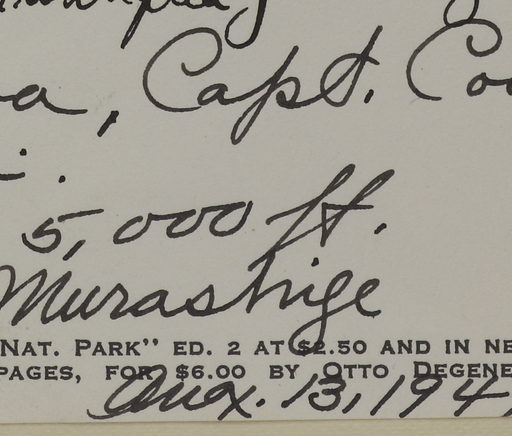 a, Capt. Coo
5,000 ft.
Murashige
NAT. PARK" ED. 2 AT $2.50 AND IN NE
PAGES, FOR $6.00 BY OTTO DEGENE
Aug. 13, 194